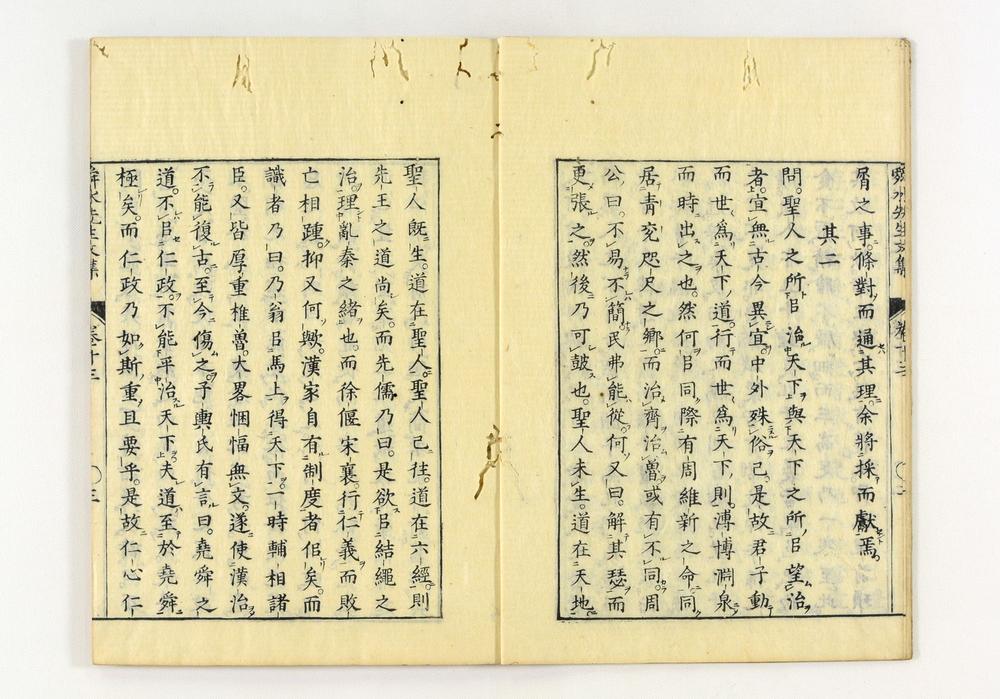 舜水先生文集 卷十三 〇二
屑之事。條對而通其理。余將採而獻焉。
其二
問。聖人之所㠯治天下。與天下之所㠯望治
者。宜無古今異宜。中外殊俗已。是故君子動
而世爲天下道。行而世爲天下則。溥博淵泉
而時出之也。然何㠯同際有周維新之命。同
居青兗咫尺之鄉。而治齊治魯。或有不同。周
公曰。不易不簡。民弗能從。何又曰。解其瑟而
更張之。然後乃可皷也。聖人未生。道在天地。
聖人旣生。道在聖人。聖人已往。道在六經。則
先王之道尚矣。而先儒乃曰。是欲㠯結繩之
治。理亂秦之緒也。而徐偃宋襄。行仁義而敗
亡相踵。抑又何歟。漢家自有制度者佀矣。而
識者乃曰。乃翁㠯馬上得天下。一時輔相諸
臣。又皆厚重椎魯。大畧悃愊無文。遂使漢治
不能復古。至今傷之。子輿氏有言曰。堯舜之
道。不㠯仁政。不能平治天下。夫道至於堯舜
極矣。而仁政乃如斯重且要乎。是故仁心仁
舜水先生文集 卷十三 〇三